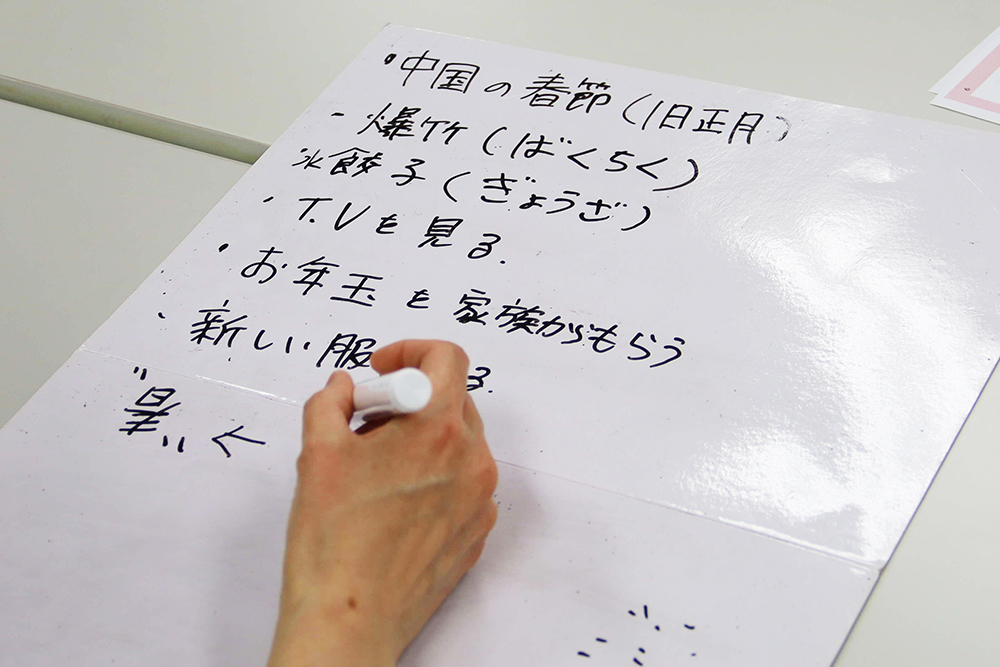 ・中国の春節(旧正月)
-爆竹(ばくちく)
水餃子(ぎょうざ)
・T.Vを見る.
・お年玉を家族からもらう
・新しい服 る.
←